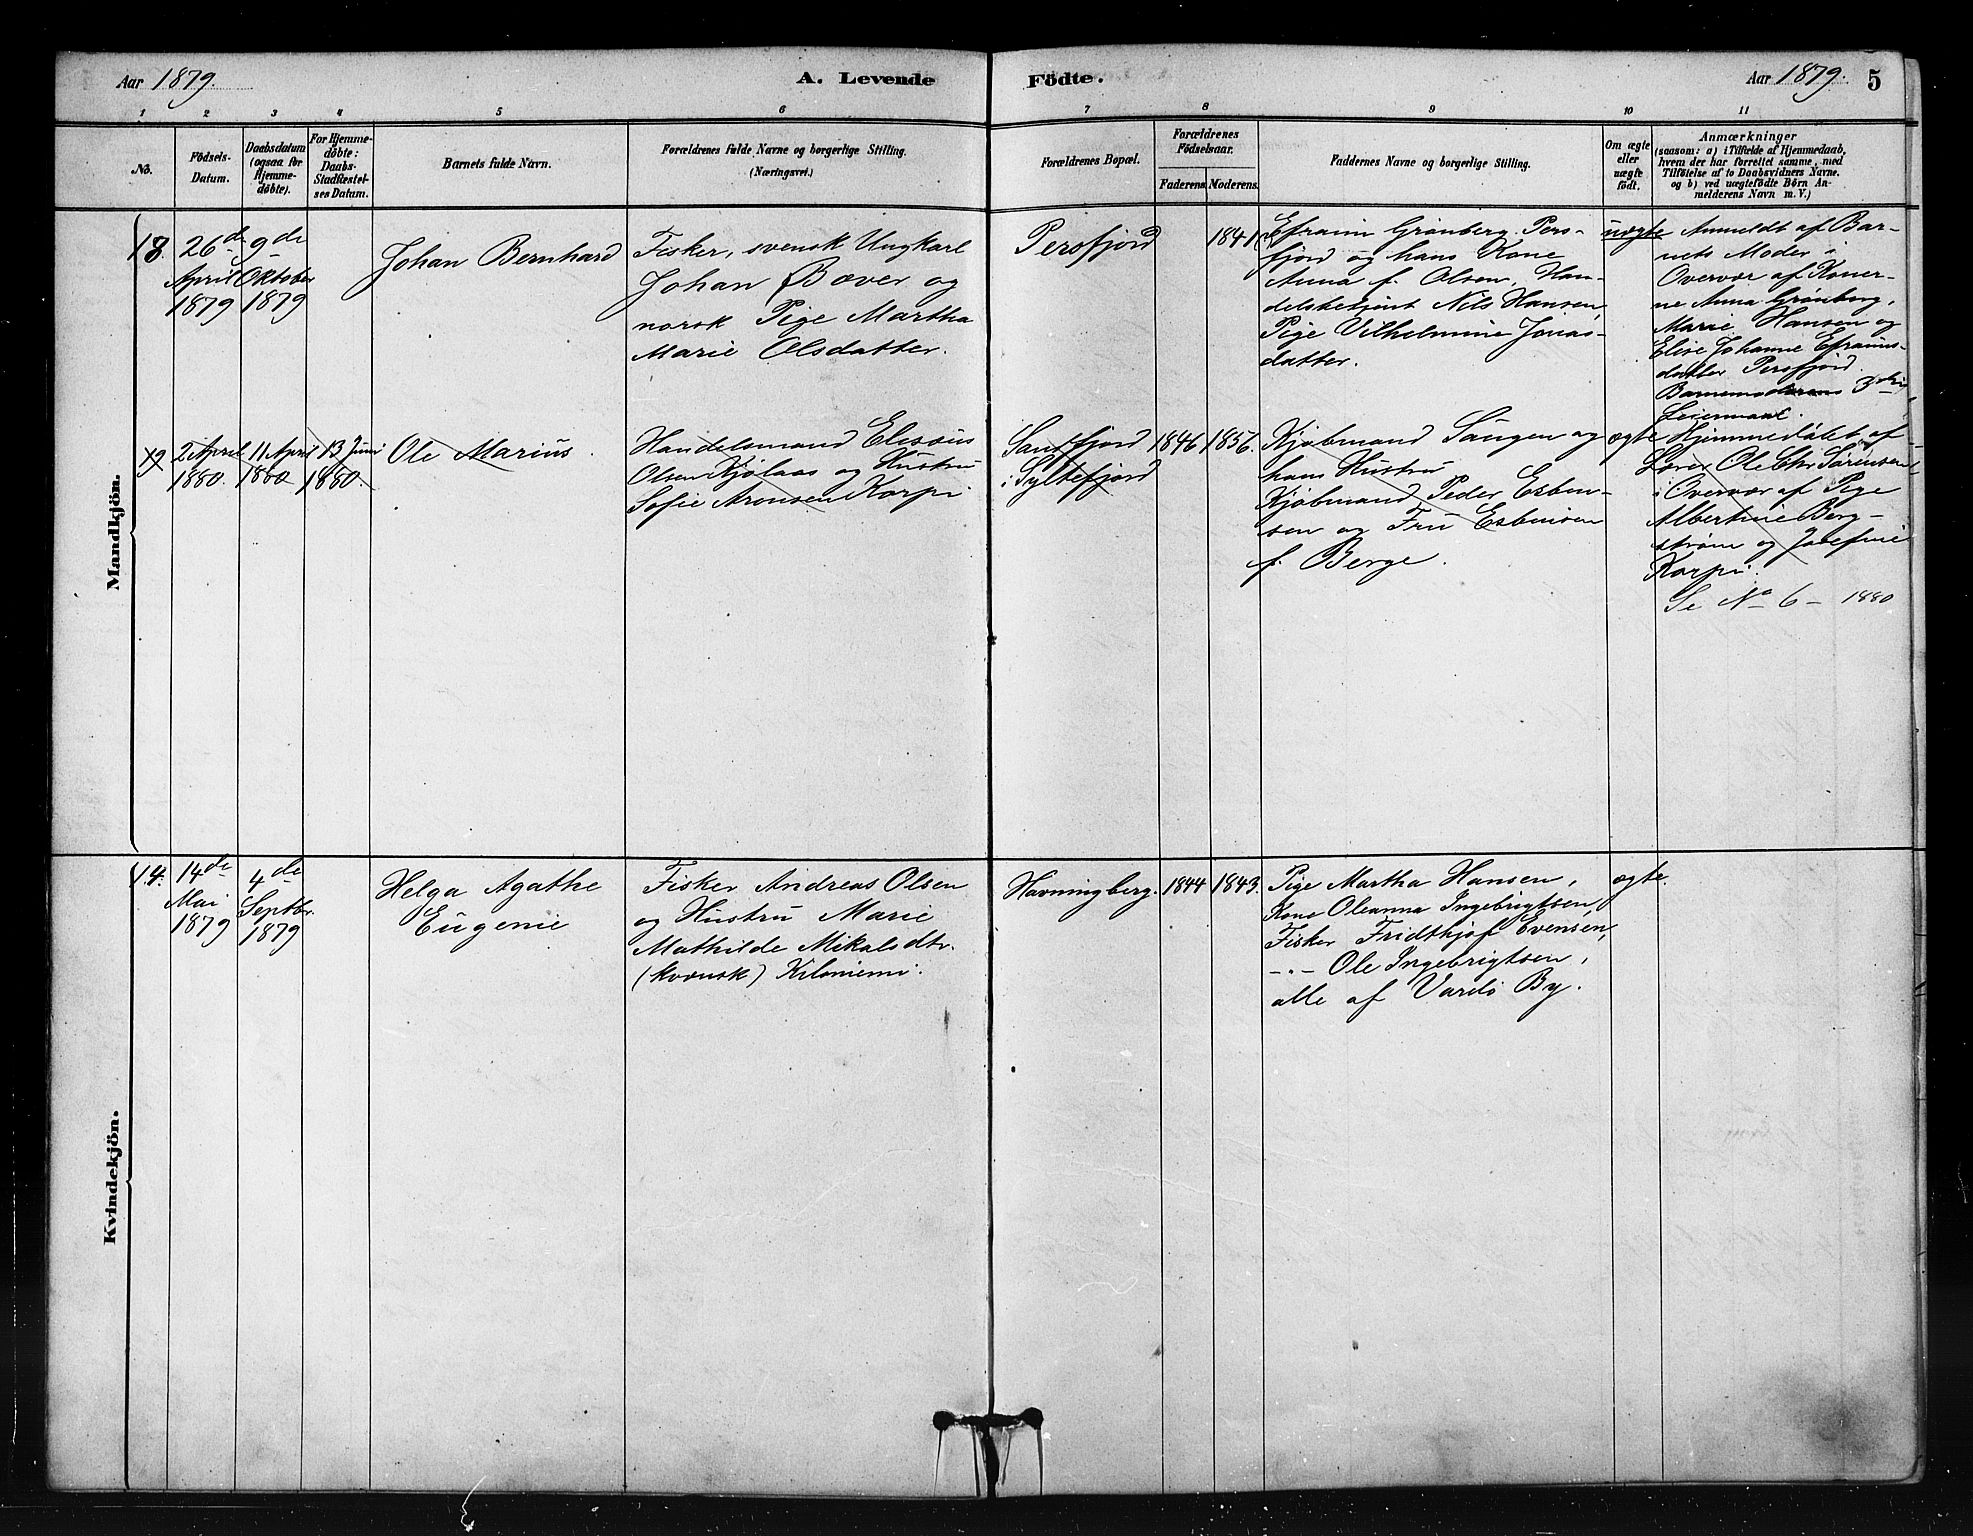 Aar 1879.
A. Levende
Födte.
Aar 1879. 5
1 2 3 4 5 6 7 8 9 10 11
No.
Födsels-
Datum.
Daabsdatum
(ogsaa for
Hjemme-
döbte).
For Hjemme-
döbte:
Daabs-
Stadfæstel-
ses Datum.
Barnets fulde Navn.
Forældrenes fulde Navne og borgerlige Stilling.
(Næringsvei.)
Forældrenes Bopæl.
Forældrenes
Födselsaar.
Faderens. Moderens.
Faddernes Navne og borgerlige Stilling.
Om ægte
eller
uægte
födt.
Anmærkninger
(saasom: a) i Tilfælde af Hjemmedaab,
hvem der har forrettet samme, med
Tilföielse af to Daabsvidners Navne.
og b) ved uægtefödte Börn An-
melderens Navn m. V.)
Mandkjön.
18.
26de
April
1879
9de
Oktober
1879
Johan Bernhard
Fisker, svensk Ungkarl
Johan Bæver og
norsk Pige Martha
Marie Olsdatter.
Persfjord
1841
Efraim Grønberg, Pers-
fjord og hans Kone
Anna f. Olsen, Han-
delsbetjent Nils Hansen,
Pige Vilhelmine Jonas-
datter.
uægte
Anmeldt af Bar-
nets Moder i
Overvær af Koner-
ne Anna Grønberg,
Marie Hansen og
Elise Johanne Efraims-
datter Persfjord.
Barnemoderens 3die
Leiermaal.
19
2 April
1880.
11 April
1880
13 Juni
1880.
Ole Marius.
Handelsmand Elisæus
Olsen Kjølaas og Hustru
Sofie Aronsen Korpi.
Sandfjord
i Syltefjord
1846
1856.
Kjøbmand Saugen og
hans Hustru
Kjøbmand Peder Esben-
sen og Fru Esbensen
f. Berge.
ægte
Hjemmedøbt af
Lærer Ole Chr Sørensen
i Overvær af Pige
Albertine Berg-
strøm og Josefine
Korpi.
Se No 6 - 1880
Kvindekjön.
14.
14de
Mai
1879
4de
Septbr.
1879
Helga Agathe
Eugenie
Fisker Andreas Olsen
og Hustru Marie
Mathilde Mikalsdtr.
(kvænsk) Kiloniemi.
Havningberg.
1844
1843.
Pige Martha Hansen,
Kone Oleanna Ingebrigtsen,
Fisker Fridthjof Evensen,
-"- Ole Ingebrigtsen,
alle af Vardö By.
ægte.